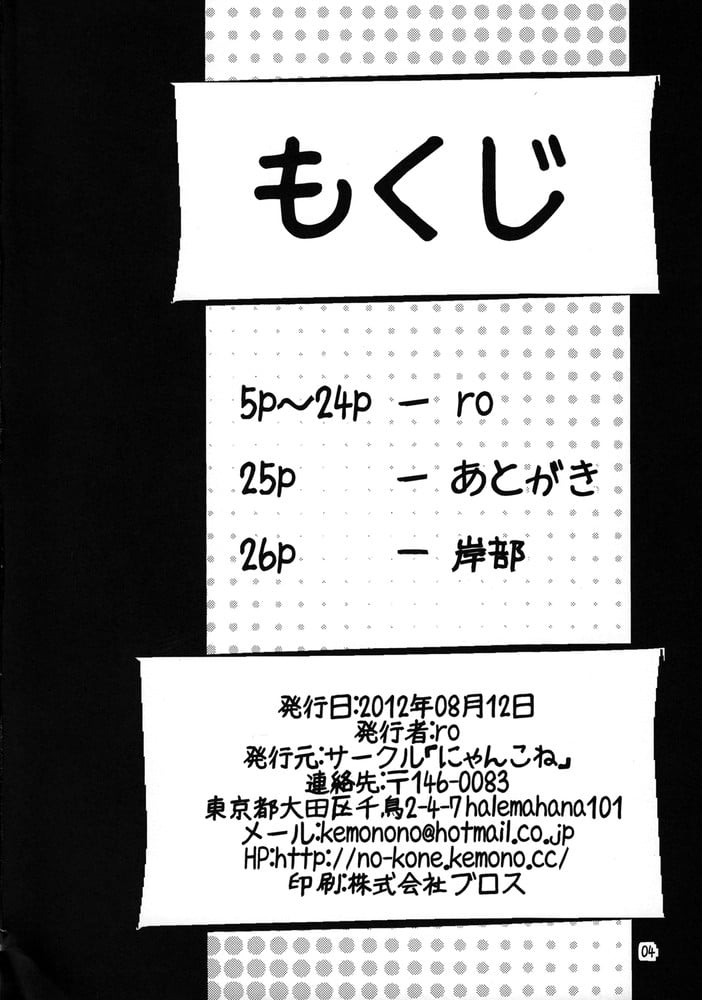 もくじ
5p～24p － ro
25p － あとがき
26p － 岸部
発行日:2012年08月12日
発行者:ro
発行元:サークル『にゃんこね』
連絡先:〒146-0083
東京都大田区千鳥2-4-7halemahana101
メール:kemonono@hotmail.co.jp
HP:http://no-kone.kemono.cc/
印刷:株式会社ブロス
04